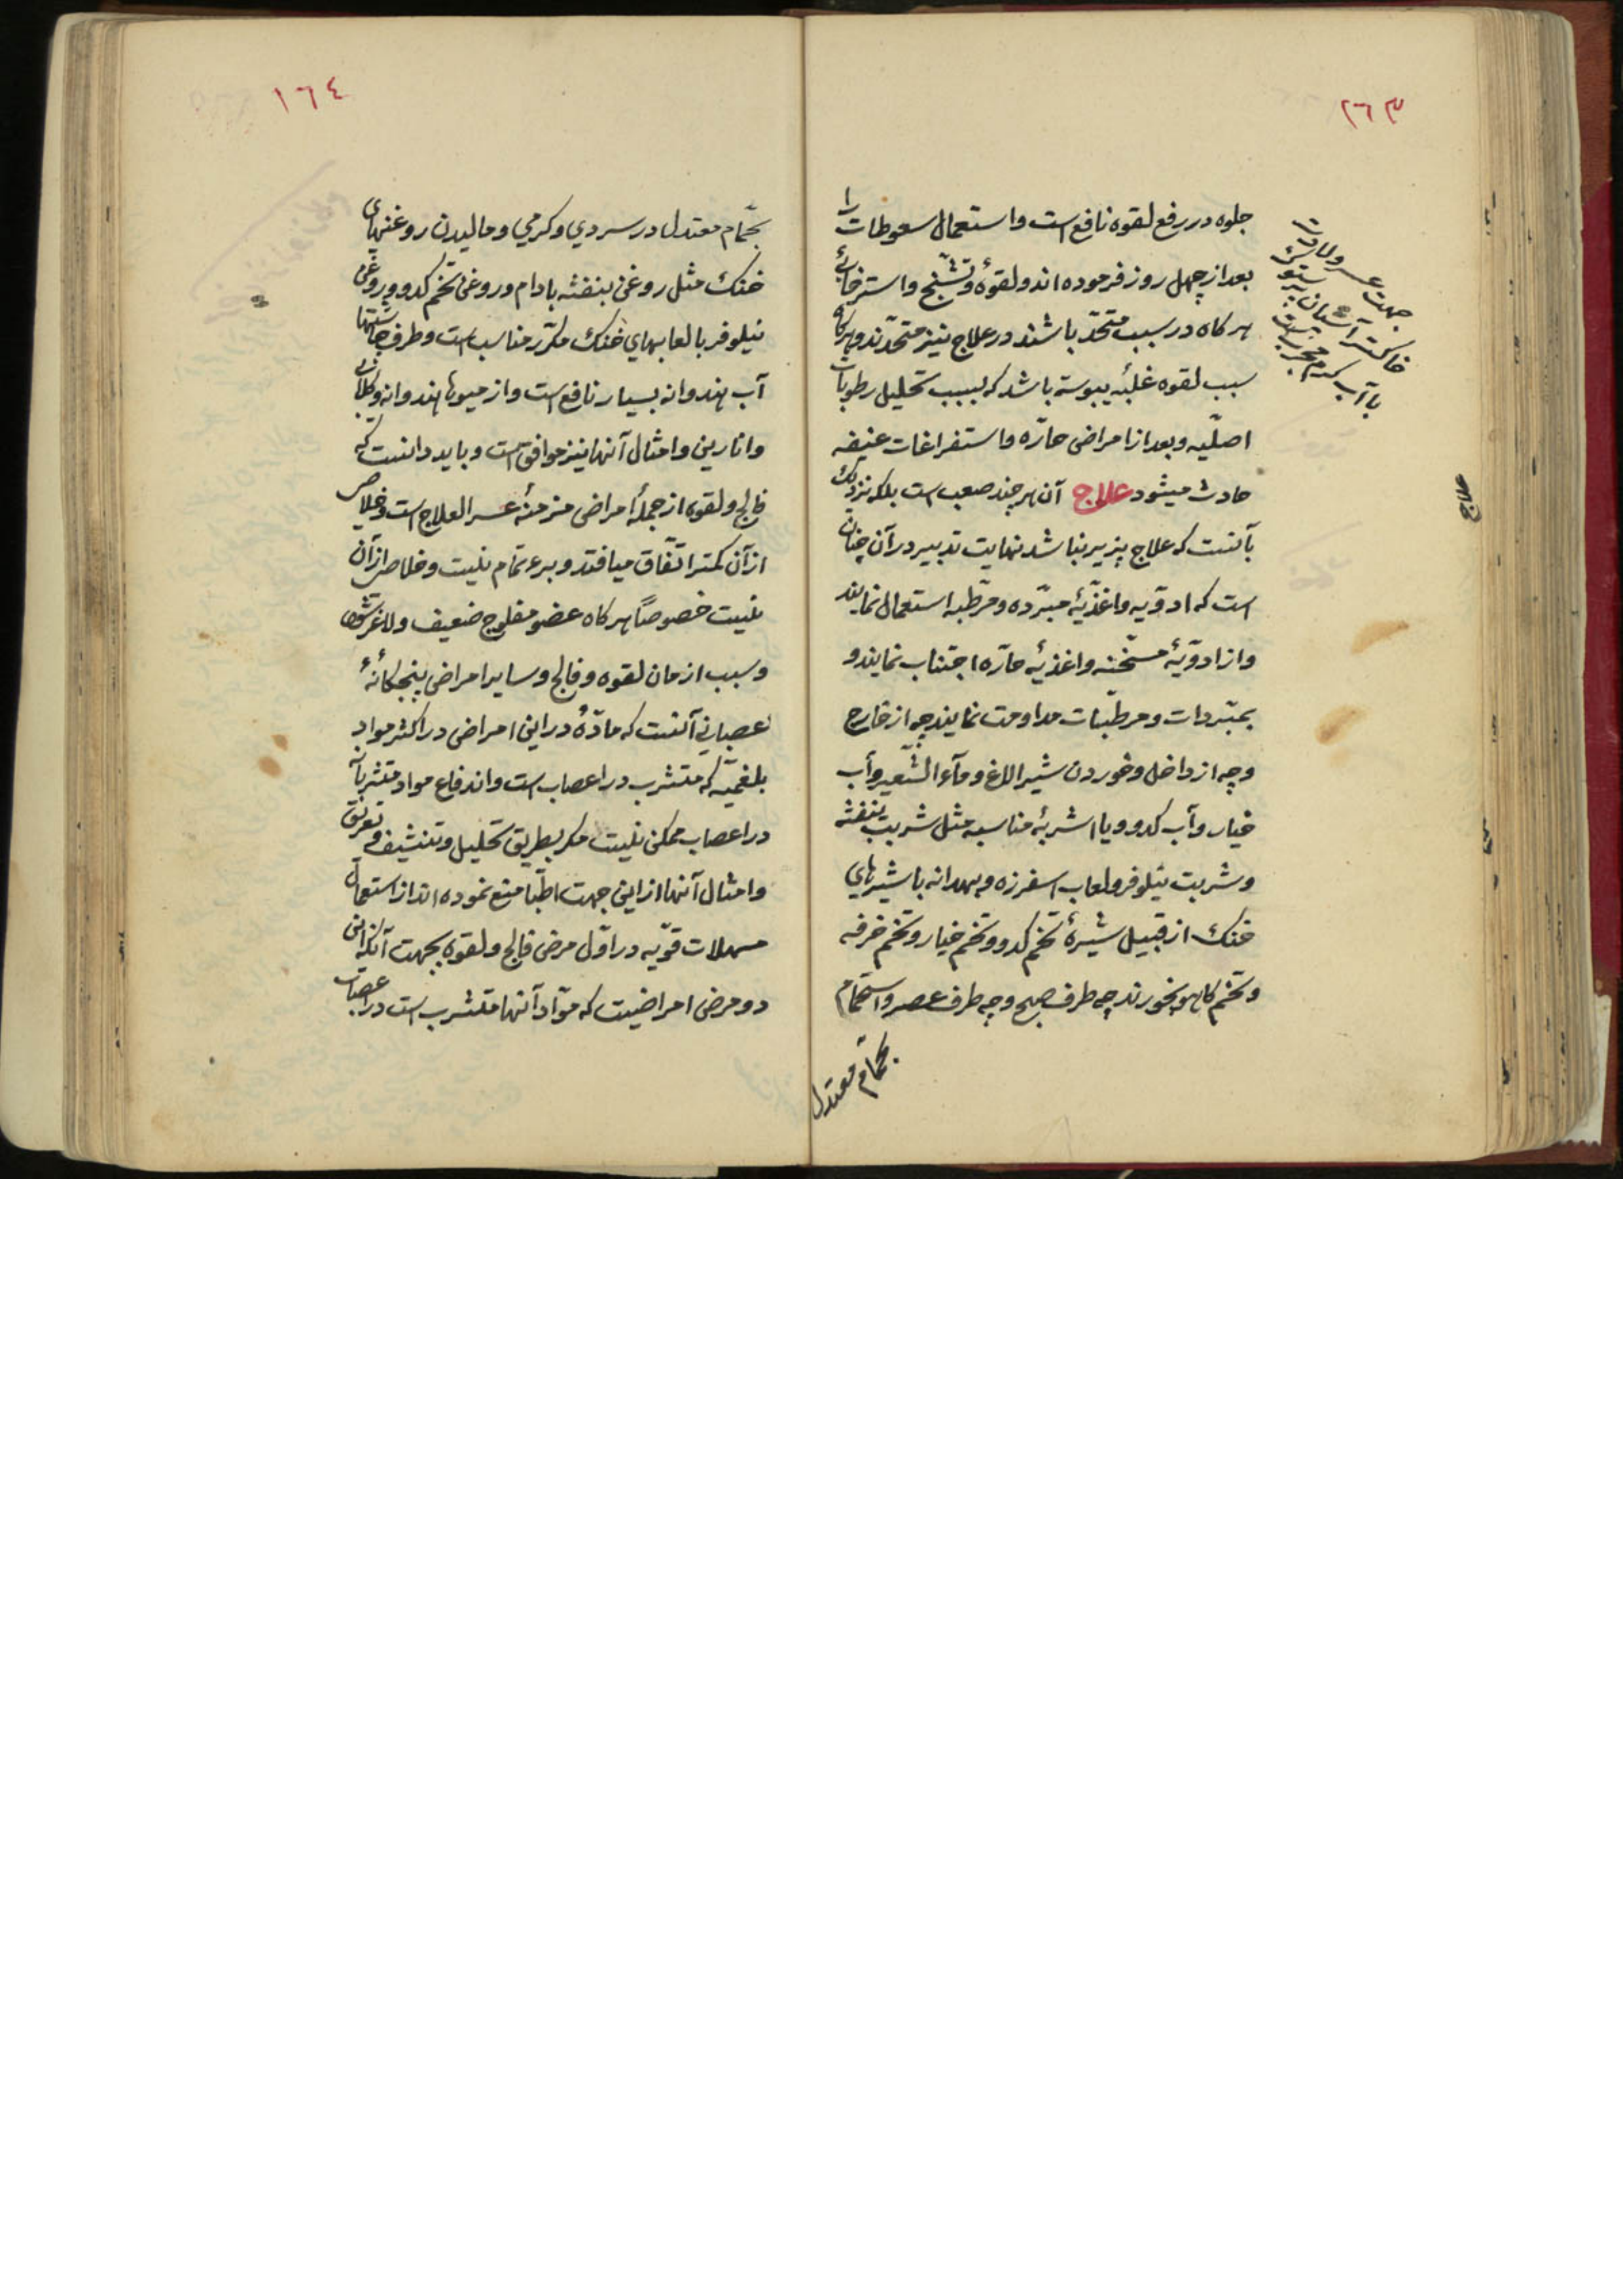 ١٦٣
جلوه در رفع لقوه نافع است و استعمال سعوطات را
بعد از چهل روز فرموده اند و لقوهٔ و تشنّج و استرخائے
هر کاه در سبب متحدّ باشند در علاج نیز متحدّند و هر کاه
سبب لقوه غلبهٔ یبوسة باشد که بسبب تحلیل رطوبات
اصلّیه و بعد از امراض حارّه و استفراغات عنیفه
حادث میشود علاج آن هر چند صعب است بلکه نزدیک
بآنست که علاج پذیر نباشد نهایت تدبیر در آن چنان
است که ادوّیه و اغذّیهٔ مبرّده و مرطّبه استعمال نمایند
و از ادوّیهٔ مسخّنه و اغذیهٔ حارّه اجتناب نمایند و
بمبّردات و مرطّبات مداومت نمایند چه از خارج
و چه از داخل و خوردن شیر الاغ و مآء الشّعیر و آب
خیار و آب کدو و یا اشربهٔ مناسبه مثل شربت بنفشه
و شربت نیلوفر و لعاب اسفرزه و بهدانه با شیرهای
خنک از قبیل شیرهٔ تخم کدو و تخم خیار و تخم خرفه
و تخم کاهو بخورند چه طرف صبح و چه طرف عصر و استحمام
بحمّام معتدل
جهت عسر ولادت
خاکستر آشیان پرستو
با آب کرم مجرب است
علاج
١٦٤
بحمّام معتدل در سردي و کرمي و مالیدن روغنهای
خنک مثل روغن بنفشه بادام و روغن تخم کدو و روغن
نیلوفر با لعابهاي خنک مکرّر مناسب است و طرف چاشتها
آب هندوانه بسیار نافع است و از میوها هندوانه و کلابی
و انارین و امثال آنها نیز موافق است و باید دانست که
فالج و لقوه از جملهٔ امراض مزمنهٔ عسر العلاج است و خلاص
از آن کمتر اتفّاق میافتد و برء تمام نیست و خلاص از آن
نیست خصوصاً هر کاه عضو مفلوج ضعیف و لاغر شود
و سبب ازمان لقوه و فالج و سایر امراض پنجکانهٔ
عصبانی آنست که مادّهٔ در این امراض در اکثر مواد
بلغمیّه که متشرب در اعصاب است و اندفاع مواد متشربه
در اعصاب ممکن نیست مکر بطریق تحلیل و تنشیف و تعریق
و امثال آنها از این جهت اطبّا منع نموده اند از استعمال
مسهلات قوّیه در اوّل مرض فالج و لقوه بجهت آنکه این
دو مرض امراضیست که موّاد آنها متشرب است در اعصاب